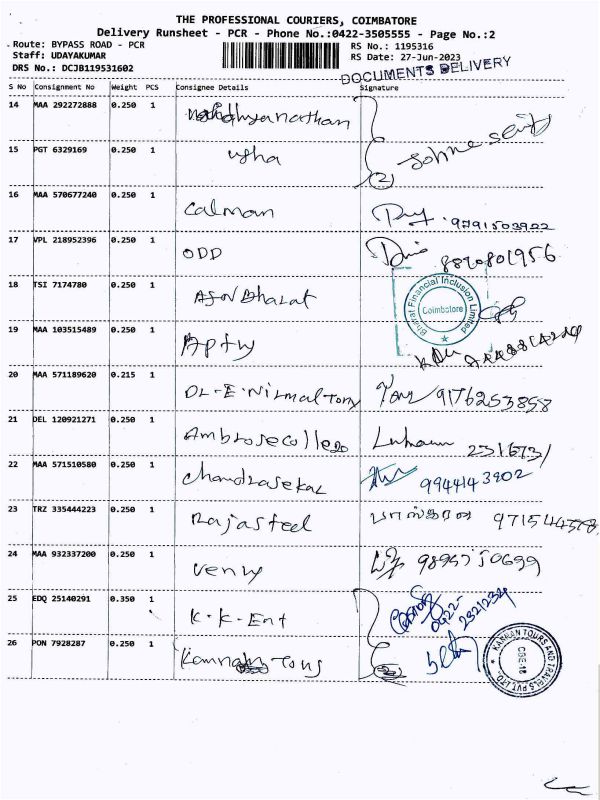 THE PROFESSIONAL COURIERS, COIMBATORE
Delivery Runsheet - PCR - Phone No.:0422-3505555 - Page No.:2
Route: BYPASS ROAD - PCR RS No.: 1195316
Staff: UDAYAKUMAR RS Date: 27-Jun-2023
DRS No.: DCJB119531602 DOCUMENTS DELIVERY
S No Consignment No Weight PCS Consignee Details Signature
14 MAA 292272888 0.250 1
15 PGT 6329169 0.250 1 usha
(2)
16 MAA 570677240 0.250 1 Calman 9791503922
17 VPL 218952396 0.250 1 ODD 8890801956
18 TSI 7174780 0.250 1 Bharat
Bharat Financial Inclusion Limited
Coimbatore
19 MAA 103515489 0.250 1
20 MAA 571189620 0.215 1 DL-E-Nirmal Tony Tony 9176253858
21 DEL 120921271 0.250 1 Ambrose College 2316731
22 MAA 571510580 0.250 1 Chandrasekar 9944143902
23 TRZ 335444223 0.250 1 Rajasteel பாஸ்கரன்
24 MAA 932337200 0.250 1
25 EDQ 25140291 0.350 1 K.K.Ent 0422-
2321234
26 PON 7928287 0.250 1
KANNAN TOURS AND TRAVELS PVT. LTD.
CBE-18